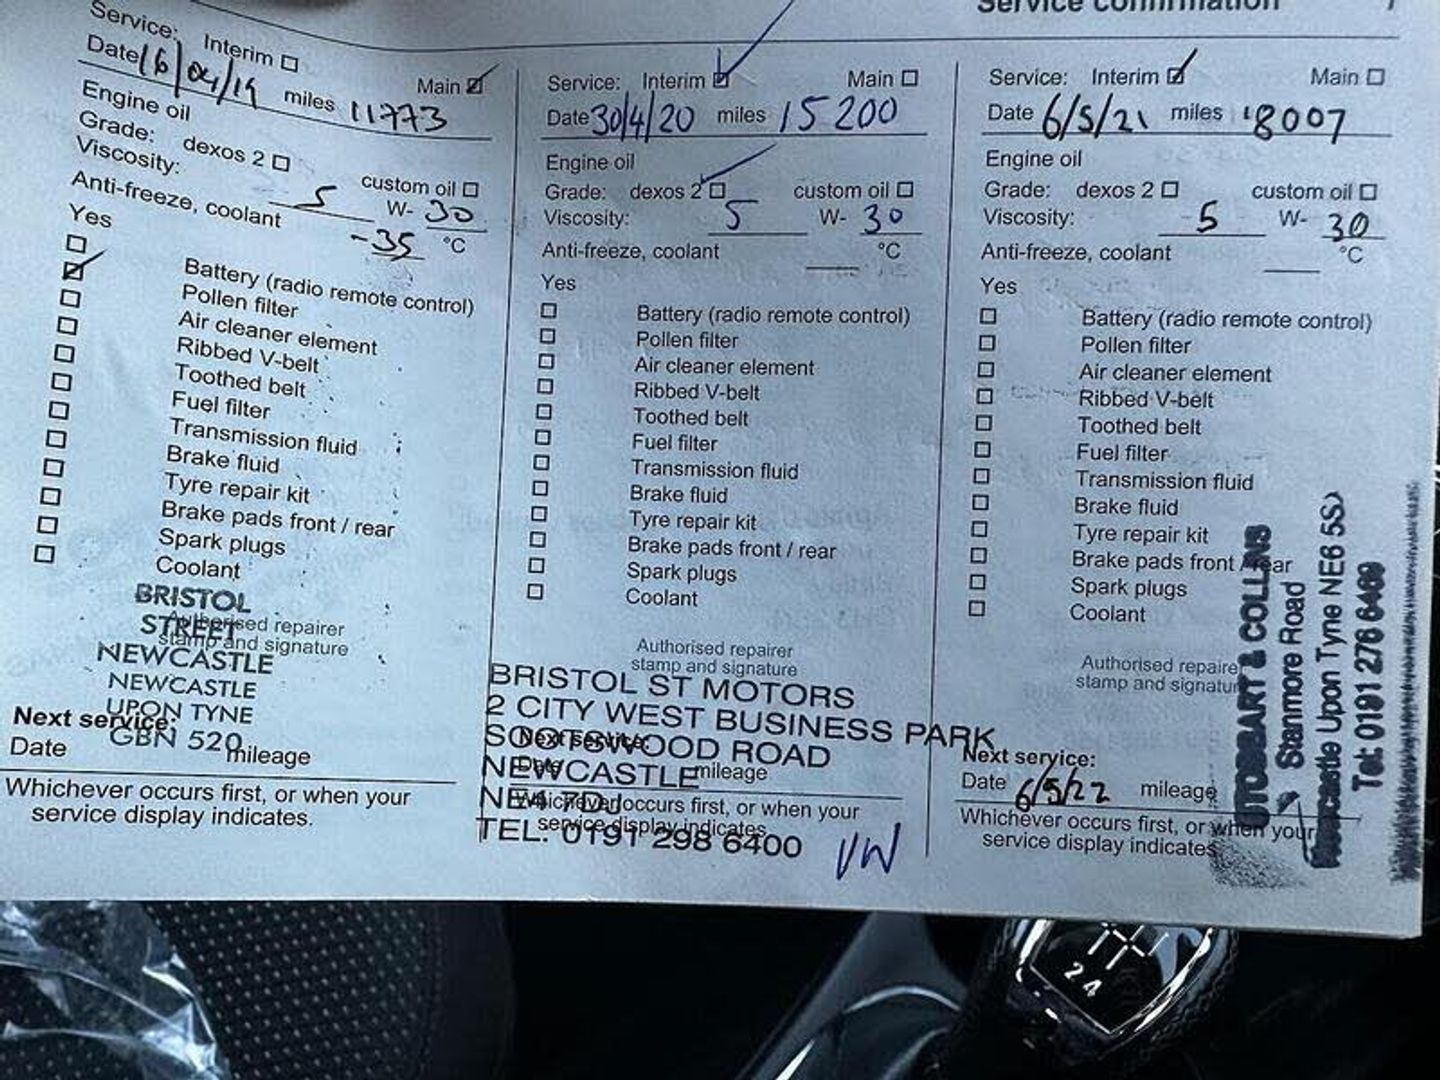 Service confirmation
Service: Interim ☐ Main ☑
Date 16/04/19 miles 11773
Engine oil
Grade: dexos 2 ☐ custom oil ☐
Viscosity: 5 W- 30
Anti-freeze, coolant -35 °C
Yes
☐ Battery (radio remote control)
☑ Pollen filter
☐ Air cleaner element
☐ Ribbed V-belt
☐ Toothed belt
☐ Fuel filter
☐ Transmission fluid
☐ Brake fluid
☐ Tyre repair kit
☐ Brake pads front / rear
☐ Spark plugs
☐ Coolant
Authorised repairer
stamp and signature
BRISTOL
STREET
NEWCASTLE
NEWCASTLE
UPON TYNE
GBN 520
Next service:
Date mileage
Whichever occurs first, or when your
service display indicates.
Service: Interim ☑ Main ☐
Date 30/4/20 miles 15200
Engine oil
Grade: dexos 2 ☑ custom oil ☐
Viscosity: 5 W- 30
Anti-freeze, coolant °C
Yes
☐ Battery (radio remote control)
☐ Pollen filter
☐ Air cleaner element
☐ Ribbed V-belt
☐ Toothed belt
☐ Fuel filter
☐ Transmission fluid
☐ Brake fluid
☐ Tyre repair kit
☐ Brake pads front / rear
☐ Spark plugs
☐ Coolant
Authorised repairer
stamp and signature
BRISTOL ST MOTORS
2 CITY WEST BUSINESS PARK
SCOTSWOOD ROAD
NEWCASTLE
NE4 7DJ
TEL: 0191 298 6400
Next service:
Date mileage
Whichever occurs first, or when your
service display indicates.
VW
Service: Interim ☑ Main ☐
Date 6/5/21 miles 18007
Engine oil
Grade: dexos 2 ☐ custom oil ☐
Viscosity: 5 W- 30
Anti-freeze, coolant °C
Yes
☐ Battery (radio remote control)
☐ Pollen filter
☐ Air cleaner element
☐ Ribbed V-belt
☐ Toothed belt
☐ Fuel filter
☐ Transmission fluid
☐ Brake fluid
☐ Tyre repair kit
☐ Brake pads front / rear
☐ Spark plugs
☐ Coolant
Authorised repairer
stamp and signature
UTOBART & COLLINS
Stanmore Road
Newcastle Upon Tyne NE6 5S
Tel: 0191 276 6489
Next service:
Date 6/5/22 mileage
Whichever occurs first, or when your
service display indicates
2 4